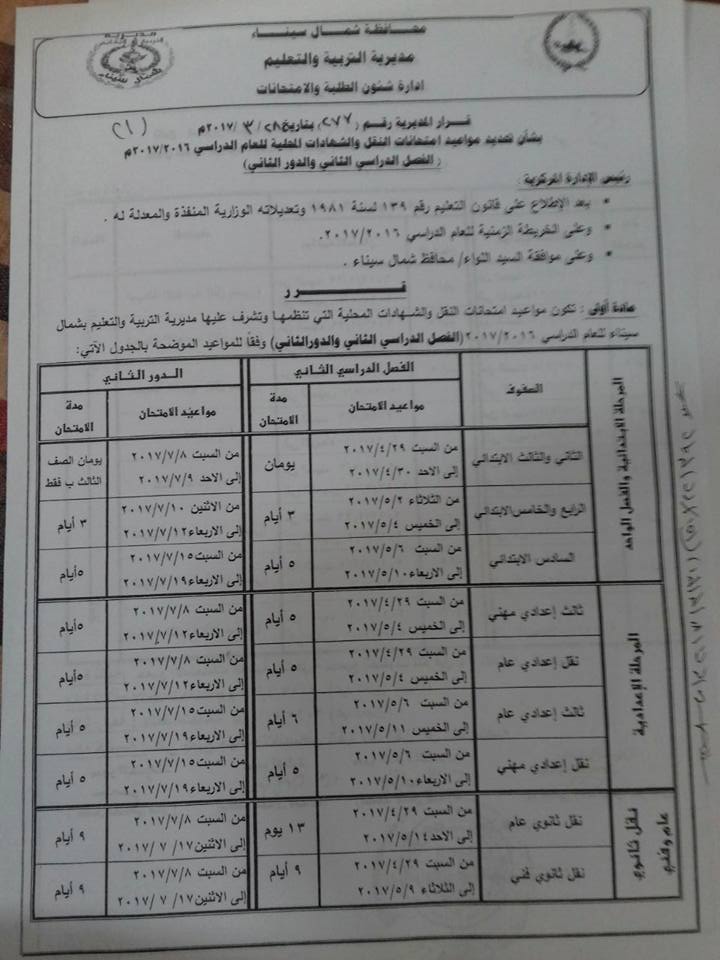 محافظة شمال سيناء
مديرية التربية والتعليم
ادارة شئون الطلبة والامتحانات
قرار المديرية رقم (٢٧٧) بتاريخ ٢٨ / ٣ / ٢٠١٧م
(١)
بشأن تحديد مواعيد امتحانات النقل والشهادات المحلية للعام الدراسي ٢٠١٧/٢٠١٦م
(الفصل الدراسي الثاني والدور الثاني)
رئيس الإدارة المركزية :
بعد الإطلاع على قانون التعليم رقم ١٣٩ لسنة ١٩٨١ وتعديلاته الوزارية المنفذة والمعدلة له .
وعلى الخريطة الزمنية للعام الدراسي ٢٠١٧/٢٠١٦.
وعلى موافقة السيد اللواء/ محافظ شمال سيناء .
قــــرر
مادة أولى : تكون مواعيد امتحانات النقل والشهادات المحلية التي تنظمها وتشرف عليها مديرية التربية والتعليم بشمال
سيناء للعام الدراسي ٢٠١٧/٢٠١٦ (الفصل الدراسي الثاني والدورالثاني) وفقاً للمواعيد الموضحة بالجدول الآتي:
الصفوف
الفصل الدراسي الثاني
الدور الثاني
مواعيد الامتحان
مدة الامتحان
مواعيد الامتحان
مدة الامتحان
المرحلة الابتدائية والفصل الواحد
الثاني والثالث الابتدائي
من السبت ٢٠١٧/٤/٢٩
إلى الاحد ٢٠١٧/٤/٣٠
يومان
من السبت ٢٠١٧/٧/٨
إلى الاحد ٢٠١٧/٧/٩
يومان الصف
الثالث ب فقط
الرابع والخامس الابتدائي
من الثلاثاء ٢٠١٧/٥/٢
إلى الخميس ٢٠١٧/٥/٤
٣ أيام
من الاثنين ٢٠١٧/٧/١٠
إلى الاربعاء ٢٠١٧/٧/١٢
٣ أيام
السادس الابتدائي
من السبت ٢٠١٧/٥/٦
إلى الاربعاء ٢٠١٧/٥/١٠
٥ أيام
من السبت ٢٠١٧/٧/١٥
إلى الاربعاء ٢٠١٧/٧/١٩
٥أيام
المرحلة الإعدادية
ثالث إعدادي مهني
من السبت ٢٠١٧/٤/٢٩
إلى الخميس ٢٠١٧/٥/٤
٥ أيام
من السبت ٢٠١٧/٧/٨
إلى الاربعاء ٢٠١٧/٧/١٢
٥أيام
نقل إعدادي عام
من السبت ٢٠١٧/٤/٢٩
إلى الخميس ٢٠١٧/٥/٤
٥ أيام
من السبت ٢٠١٧/٧/٨
إلى الاربعاء ٢٠١٧/٧/١٢
٥أيام
ثالث إعدادي عام
من السبت ٢٠١٧/٥/٦
إلى الخميس ٢٠١٧/٥/١١
٦ أيام
من السبت ٢٠١٧/٧/١٥
إلى الاربعاء ٢٠١٧/٧/١٩
٥ أيام
نقل إعدادي مهني
من السبت ٢٠١٧/٥/٦
إلى الاربعاء ٢٠١٧/٥/١٠
٥ أيام
من السبت ٢٠١٧/٧/١٥
إلى الاربعاء ٢٠١٧/٧/١٩
٥ أيام
نقل ثانوي عام وفني
نقل ثانوي عام
من السبت ٢٠١٧/٤/٢٩
إلى الاحد ٢٠١٧/٥/١٤
١٣ يوم
من السبت ٢٠١٧/٧/٨
إلى الاثنين ١٧/ ٧ /٢٠١٧
٩ أيام
نقل ثانوي فني
من السبت ٢٠١٧/٤/٢٩
إلى الثلاثاء ٢٠١٧/٥/٩
٩ أيام
من السبت ٢٠١٧/٧/٨
إلى الاثنين ١٧/ ٧ /٢٠١٧
٩ أيام